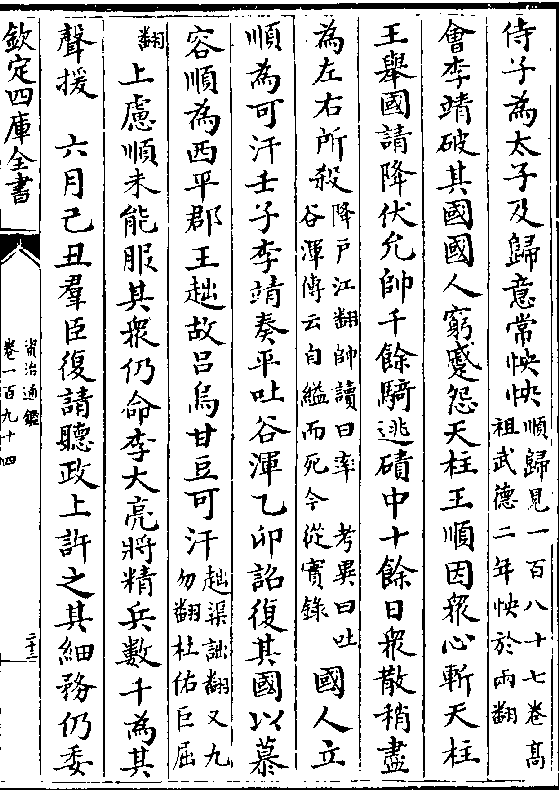 侍子為太子及歸意常怏怏順歸見一百八十七卷高祖武德二年怏於兩翻
會李靖破其國國人窮蹙怨天柱王順因衆心斬天柱
王舉國請降伏允帥千餘騎逃磧中十餘日衆散稍盡
為左右所殺降戶江翻帥讀曰率 考異曰吐谷渾傳云自縊而死今從實錄 國人立
順為可汗壬子李靖奏平吐谷渾乙卯詔復其國以慕
容順為西平郡王趉故吕烏甘豆可汗趉渠詘翻又九勿翻杜佑巨屈
翻上慮順未能服其衆仍命李大亮將精兵數千為其
聲援 六月己丑羣臣復請聽政上許之其細務仍委
欽定四庫全書
資治通鑑
卷一百九十四
二十二